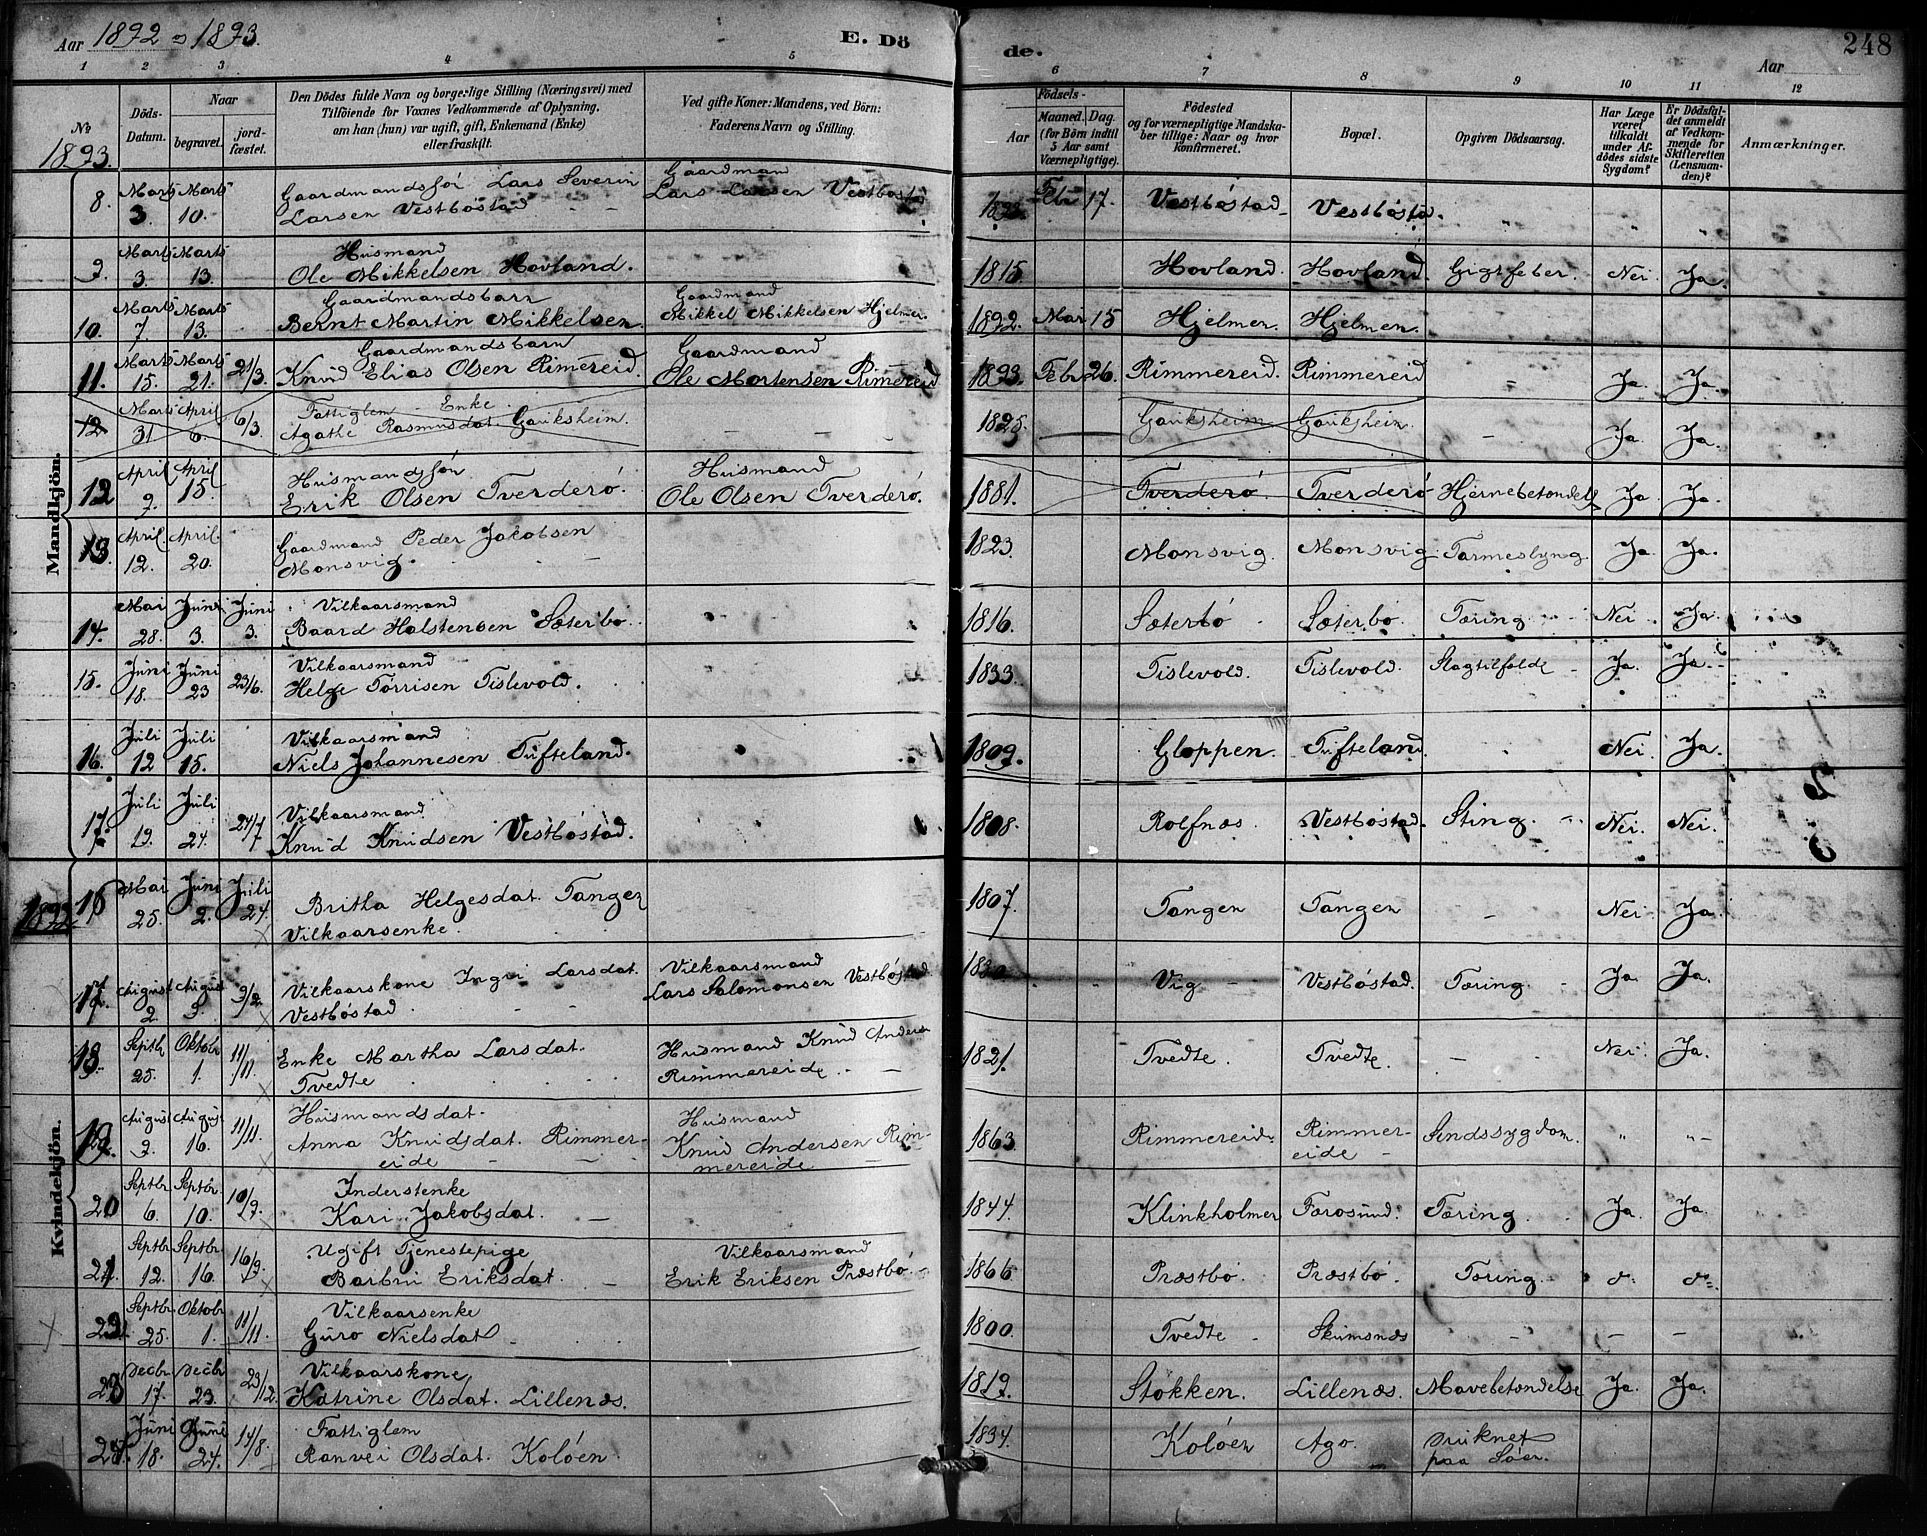 Aar 1892 = 1893.
E. Dö
de.
Aar
248
1 2 3 4 5 6 7 8 9 10 11 12
No
Döds-Datum.
Naar
begravet.
jord-fæstet.
Den Dödes fulde Navn og borgerlige Stilling (Næringsvei) med
Tilföiende for Voxnes Vedkommende af Oplysning,
om han (hun) var ugift, gift, Enkemand (Enke)
eller fraskilt.
Ved gifte Koner: Mandens, ved Börn:
Faderens Navn og Stilling.
Födsels-
Aar
Maaned. Dag.
(for Börn indtil
5 Aar samt
Værnepligtige).
Födested
og for værnepligtige Mandska-
ber tillige: Naar og hvor
konfirmeret.
Bopæl.
Opgiven Dödsaarsag.
Har Læge
været
tilkaldt
under Af-
dödes sidste
Sygdom?
Er Dödsfal-
det anmeldt
af Vedkom-
mende for
Skifteretten
(Lensman-
den)?
Anmærkninger.
1893.
Mandkjön.
8. Marts 3 Marts 10. Gaardmandssön Lars Severin
Larsen Vestböstad
Gaardman
Lars Larsen Vestböstad
1893 Feb 17. Vestböstad Vestböstad.
9. Marts 3. Marts 13. Husmand
Ole Mikkelsen Hovland. 1815 Hovland. Hovland. Gigtfeber. Nei Ja.
10. Marts 7. Marts 13. Gaardmandsbarn
Bernt Martin Mikkelsen.
Gaardmand
Mikkel Mikkelsen Hjelmer. 1892. Mar 15 Hjelmer. Hjelmen.
11. Marts 15. Marts 21. 21/3. Gaardmandsbarn
Knud Elias Olsen Rimereid.
Gaardmand
Ole Mortensen Rimereid 1893. Feb 26. Rimmereid. Rimmereid Ja Ja
12 Marts 31 April 6. 6/3. Fattiglem - Enke.
Agathe Rasmusdat. Gauksheim. 1825 Gauksheim Gauksheim. Ja Ja.
12 April 9. April 15. Husmandssön
Erik Olsen Tverderö.
Husmand
Ole Olsen Tverderö. 1881. Tverderö. Tverderö Hjernebetændelse Ja Ja.
13. April 12. April. 20. Gaardmand Peder Jakobsen
Monsvig. 1823. Monsvig. Monsvig. Tarmeslyng Ja. Ja.
14. Mai 28. Juni 3. Juni 3. Vilkaarsmand
Baard Halstensen Sæterbö. 1816. Sæterbö Sæterbö. Tæring Nei Ja.
15. Juni 18. Juni 23 23/6. Vilkaarsmand
Helge Torrisen Tislevold. 1833. Tislevold. Tislevold. Slagtilfelde Ja Ja
16. Juli 12 Juli 15. Vilkaarsmand
Niels Johannesen Tufteland. 1809. Gloppen. Tufteland. Nei. Ja.
17. Juli 19. Juli 24. 24/7 Vilkaarsmand
Knud Knudsen Vestböstad. 1808. Rolfnæs Vestböstad. Sting. Nei. Nei.
1892
Kvindekjön.
16 Mai 25. Juni 2. Juli 24. Britha Helgesdat. Tangen
Vilkaarsenke. 1807. Tangen Tangen - Nei Ja.
17. August 2. August 9. 9/2 Vilkaarskone Ingri Larsdat.
Vestböstad.
Vilkaarsmand
Lars Salomonsen Vestböstad 1830 Vig Vestböstad. Tæring Ja. Ja.
18. Septbr 25. Oktobr 1. 11/11 Enke Martha Larsdat.
Tvedte
Husmand Knud Anders
Rimmereide. 1821. Tvedte. Tvedte. Nei. Ja.
19. August 9. August 16. 11/11. Husmandsdat.
Anna Knudsdat. Rimmer-
eide
Husmand
Knud Andersen Rim-
mereide 1863. Rimmereide Rimmer-
eide Sindssygdom. „ „-
20 Septbr 6. Septbr. 10. 10/9. Inderstenke
Kari Jakobsdat. 1844. Klinkholmen Færosund. Tæring. Ja Ja.
21. Septbr 12. Septbr 16. 16/9. Ugift Tjenestepige
Barbru Eriksdat.
Vilkaarsmand
Erik Eriksen Præstbö 1866. Præstbö. Præstbö. Tæring
22. Septbr 25. Oktobr 1. 11/11. Vilkaarsenke
Guro Nielsdat. 1800. Tvedte Skumsnæs
23 Decbr 17. Decbr 23. 23/12. Vilkaarskone
Katrine Olsdat. Lillenæs. 1819. Stökken. Lillenæs. Mavebetændelse Ja Ja.
24. Juni 18. Juni 24. 14/8. Fattiglem
Ranvei Olsdat. Kolöen. 1834. Kolöen Ago. Druknet
paa Söen.